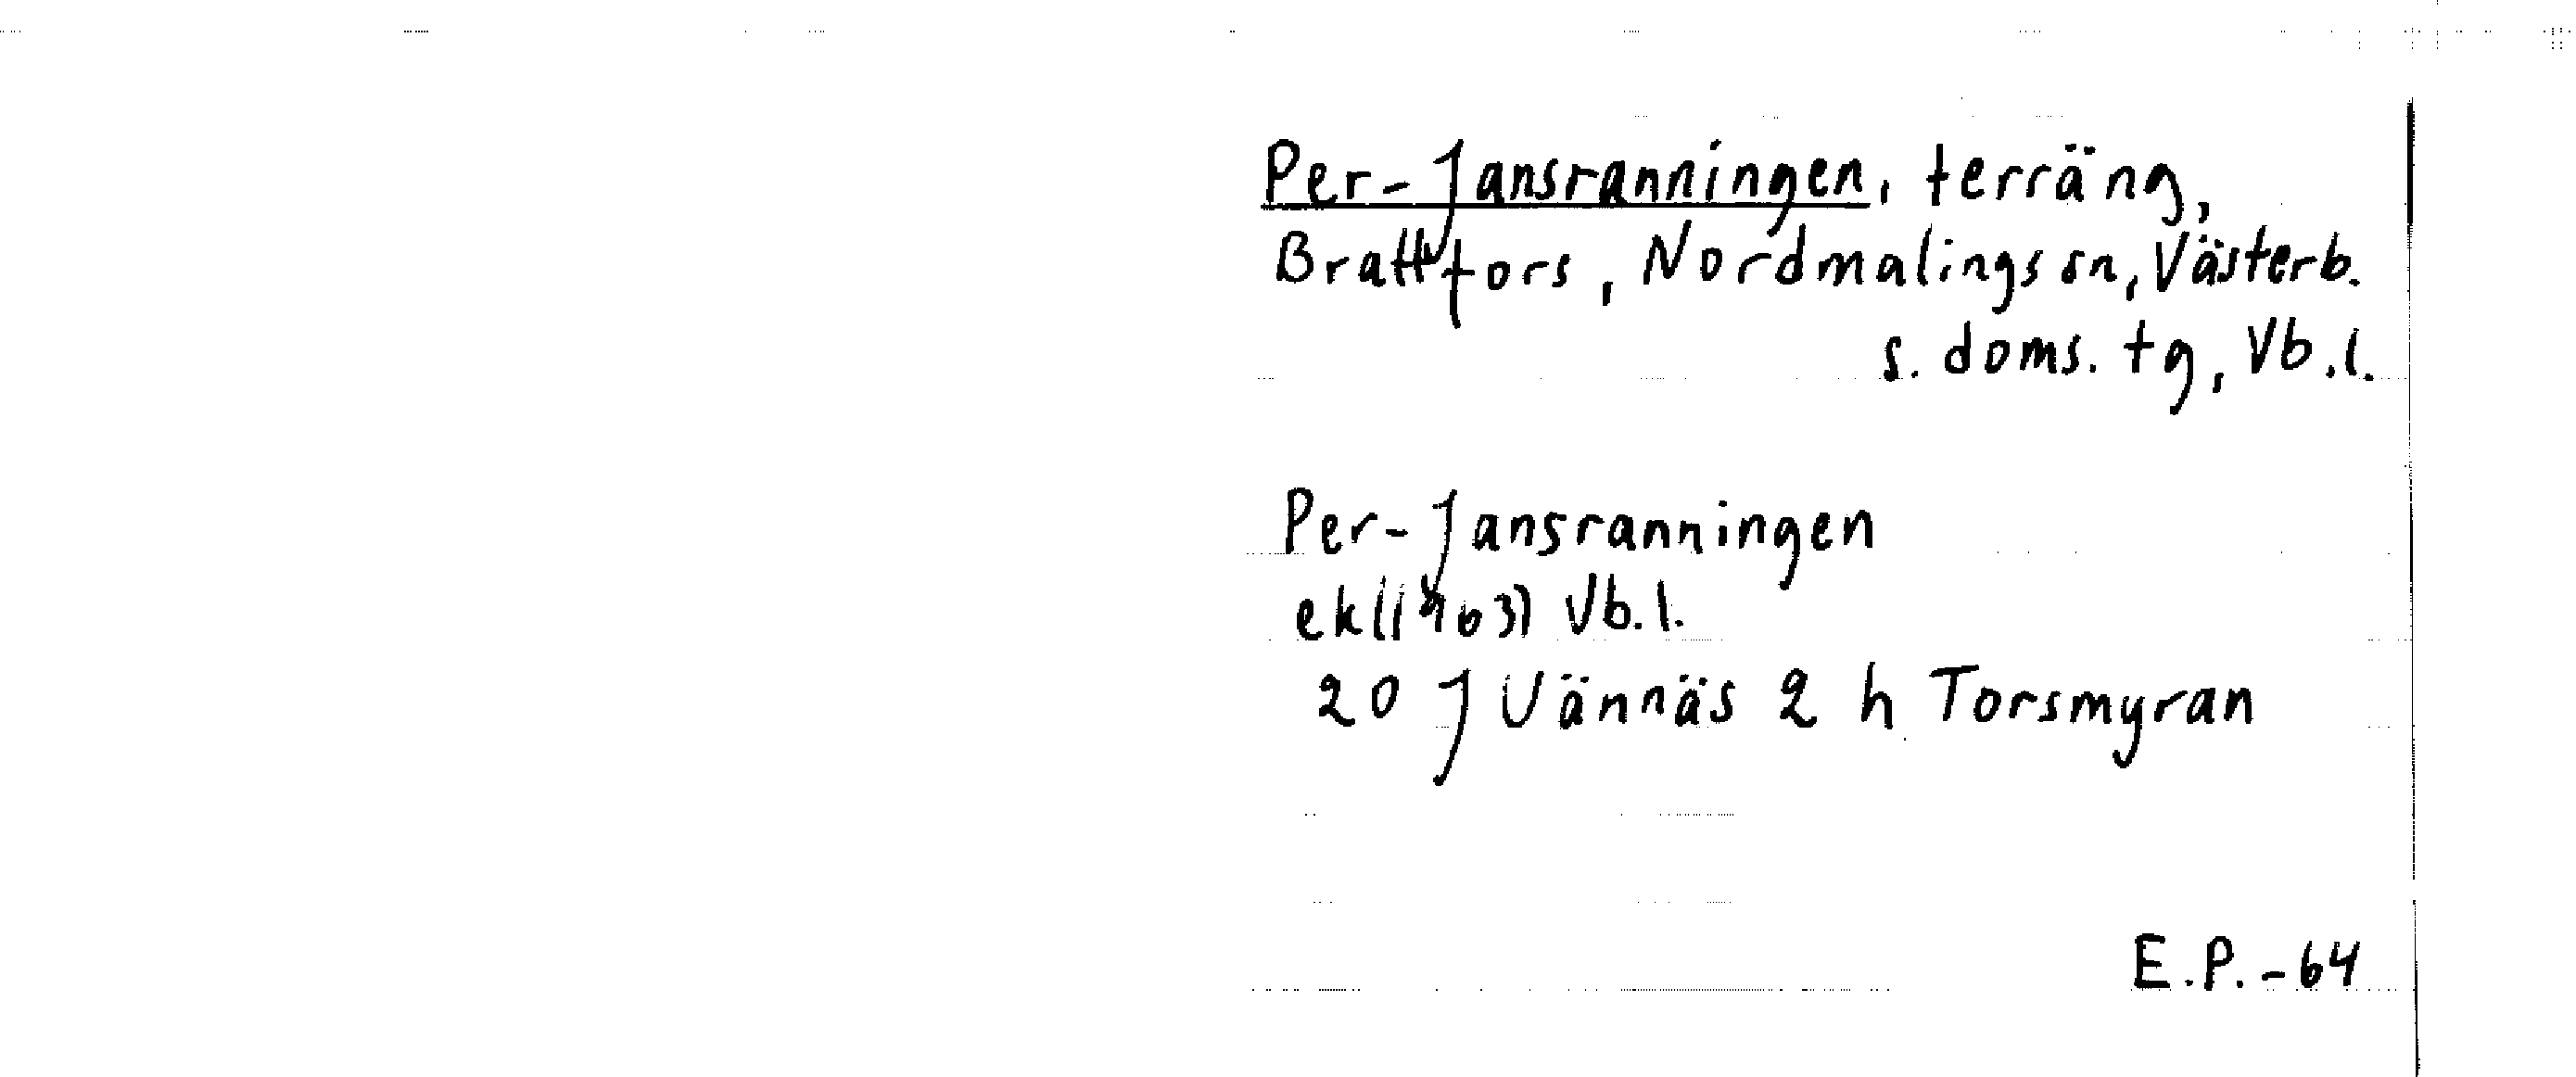 Per-Jansranningen, terräng,
Brattfors, Nordmalings sn, Västerb.
s. doms. tg, Vb.l.
Per-Jansranningen
ek(1963) Vb.l.
20 J Vännäs 2 h Torsmyran
E.P.-64